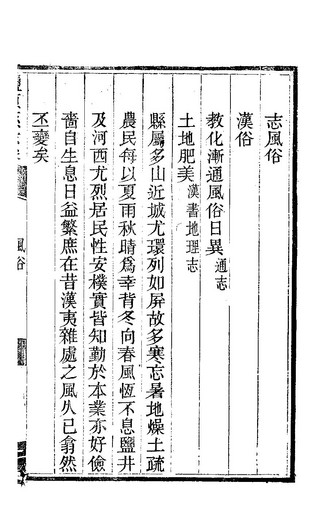 志風俗
漢俗
教化漸通風俗日異通志
土地肥美漢書地理志
縣屬多山近城尤環列如屏故多寒忘暑地燥土疏
農民每以夏雨秋晴爲幸背冬向春風恆不息鹽井
及河西尤烈居民性安樸實皆知勤於本業亦好儉
嗇自生息日益繁庶在昔漢夷雜處之風久已翕然
丕變矣
風俗